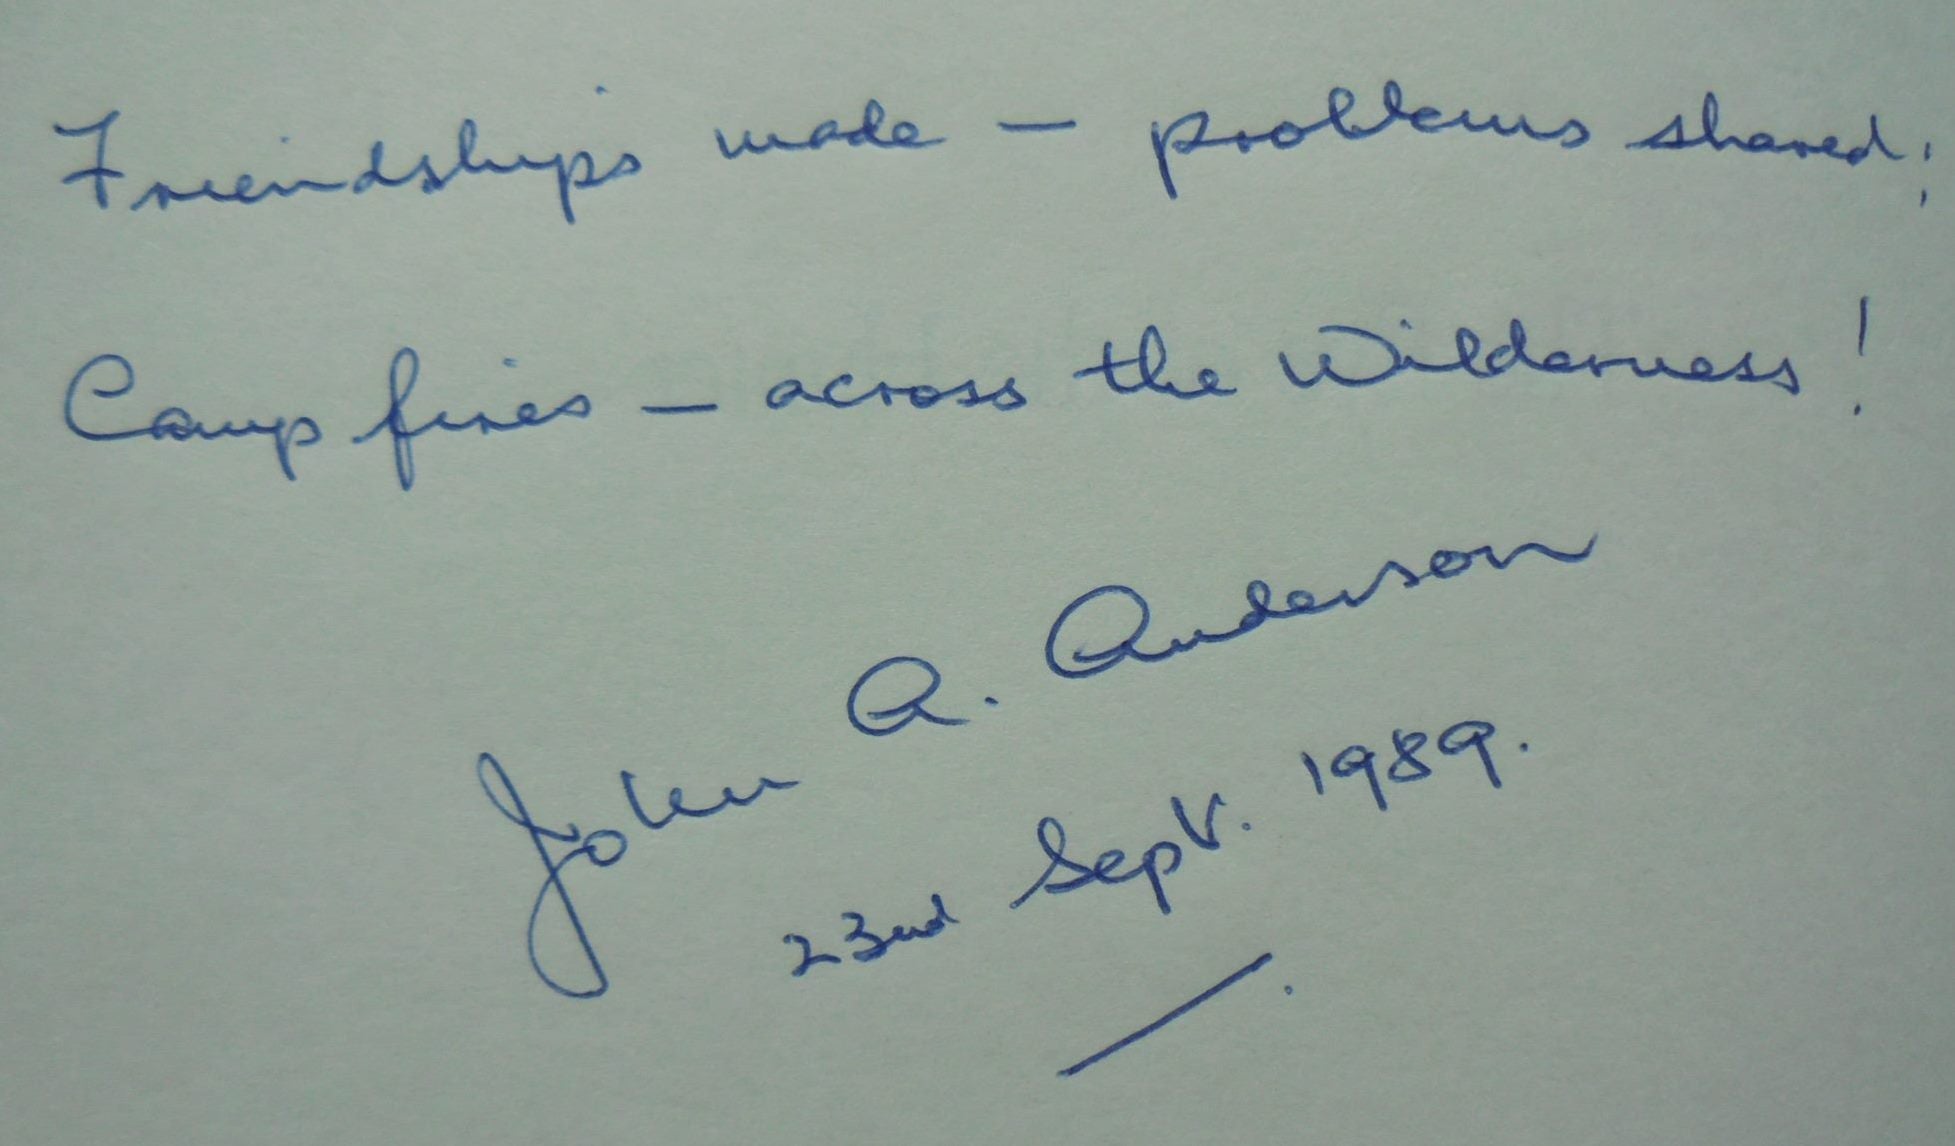 Friendships made — problems shared;
Camp fires — across the Wilderness!
John A. Anderson
23nd Sept. 1989.